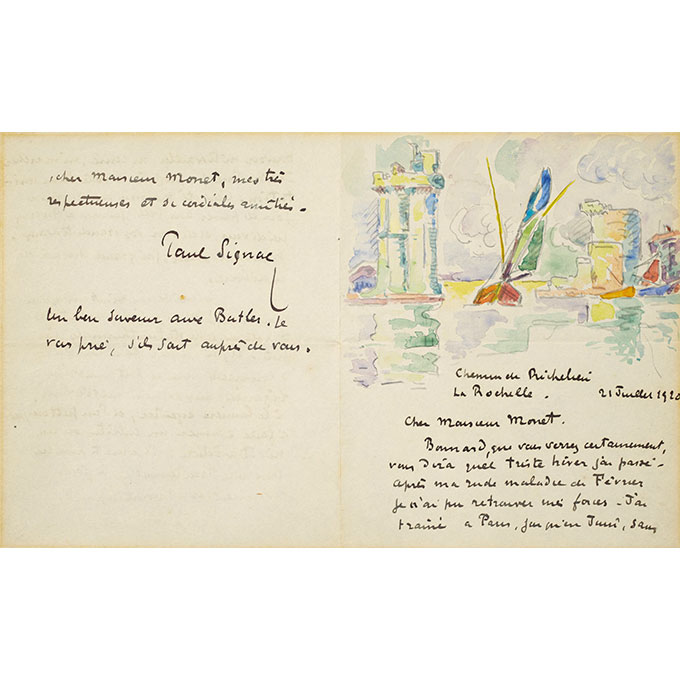 , cher Monsieur Monet, mes très
respectueuses et si cordiales amitiés.
Paul Signac
Un bon souvenir aux Butler. Je
vous prie, s'ils sont auprès de vous.
Chemin de Richelieu
La Rochelle. 21 Juillet 1920
Cher Monsieur Monet.
Bonnard, que vous verrez certainement,
vous dira quel triste hiver j'ai passé -
après ma rude maladie de Février
je n'ai pu retrouver mes forces - J'ai
trainé à Paris, jusqu'en Juin, sans